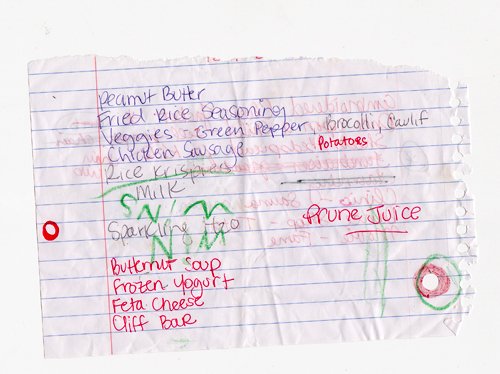 Peanut Butter
Fried Rice Seasoning
Veggies - Green Pepper, Brocolli, Caulif
Chicken Sausage Potatoes
Rice Krispies
Milk
Sparkling H2O
Prune Juice
Butternut Soup
Frozen Yogurt
Feta Cheese
Cliff Bar